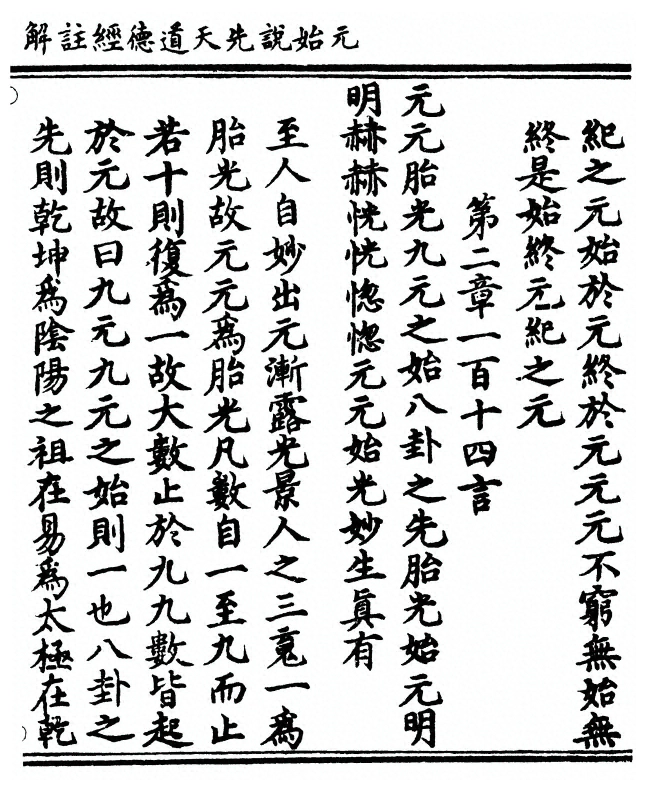 元始說先天道德經註解
紀之元始於元終於元元元不窮無始無
終是始終元紀之元
第二章一百十四言
元元胎光九元之始八卦之先胎光始元明
明赫赫恍恍惚惚元元始光妙生眞有
至人自妙出元漸露光景人之三䰟一爲
胎光故元元爲胎光凡數自一至九而止
若十則復爲一故大數止於九九數皆起
於元故曰九元九元之始則一也八卦之
先則乾坤爲陰陽之祖在易爲太極在乾